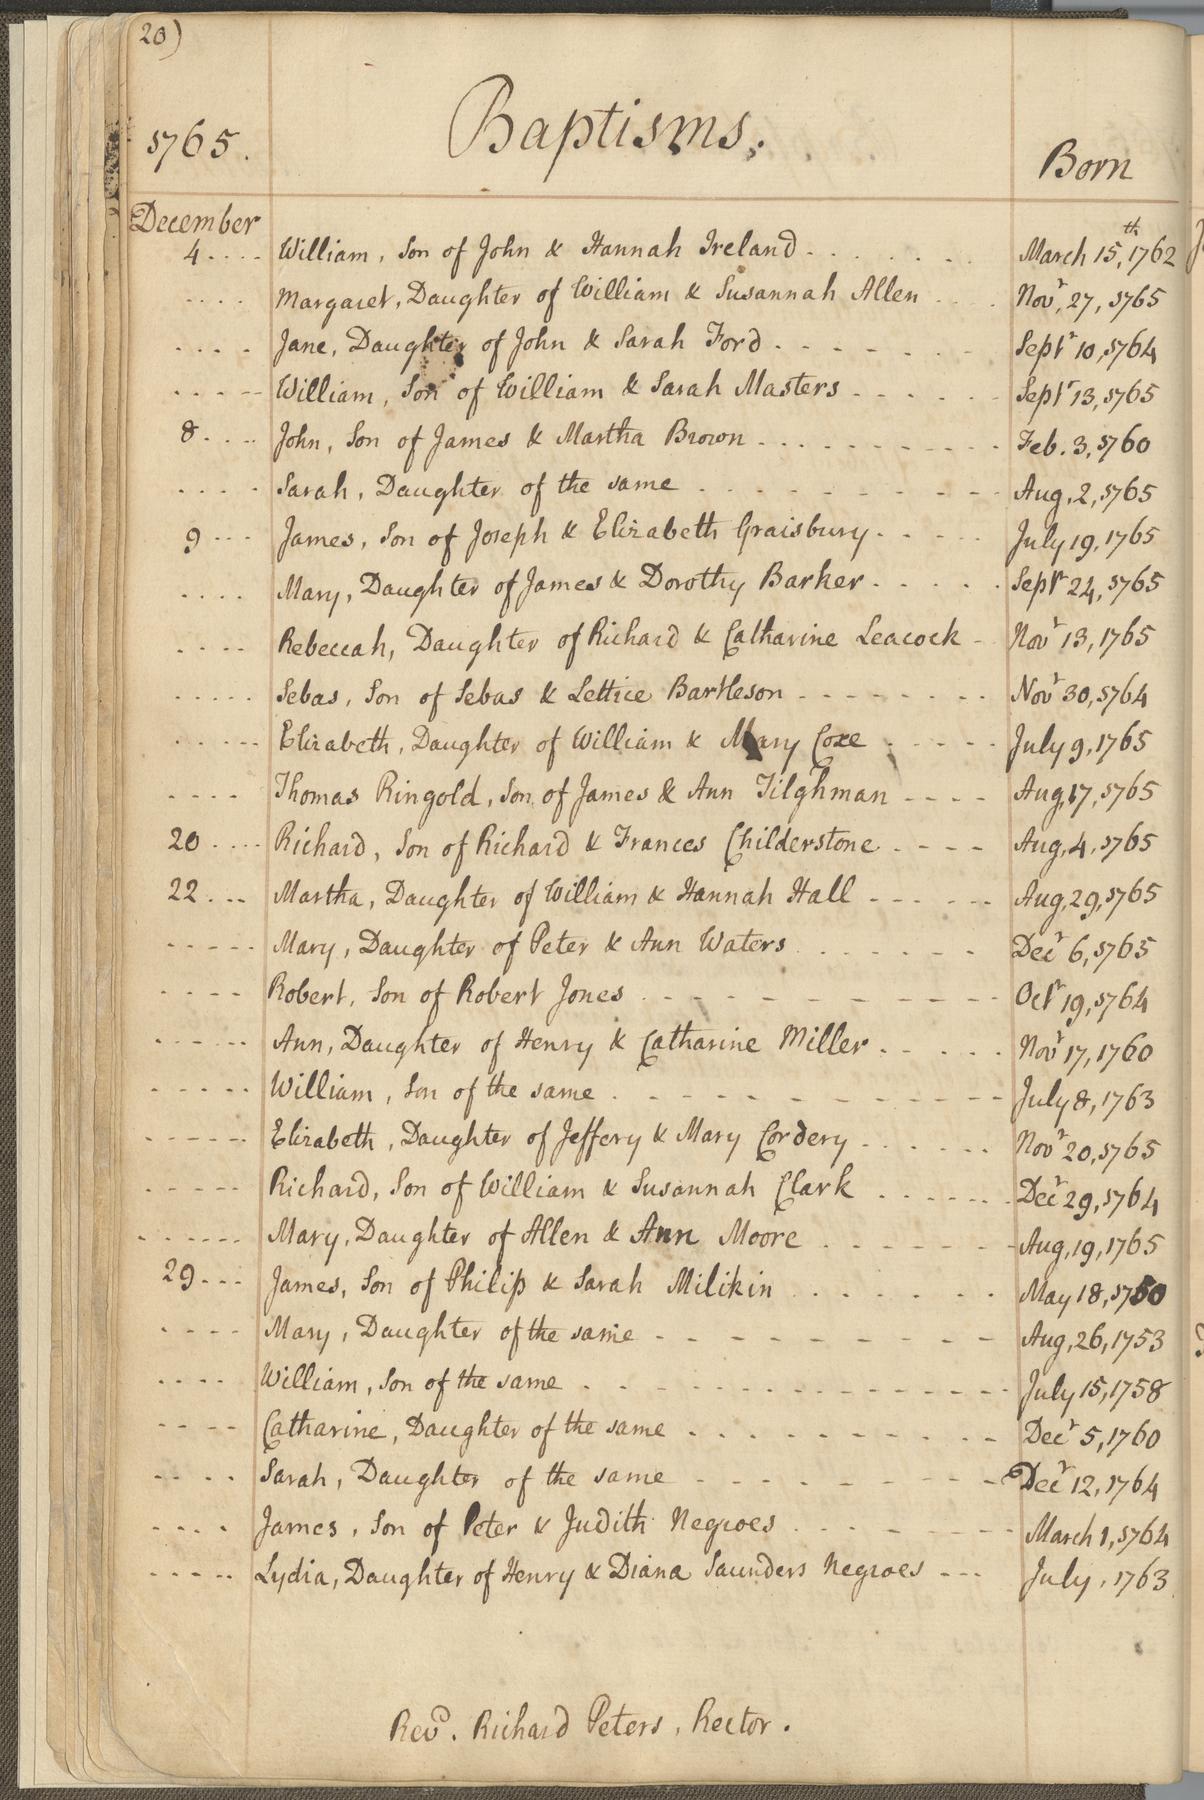 20)
1765. Baptisms. Born
December
4.... William, Son of John & Hannah Ireland....... March 15,th 1762
.... Margaret, Daughter of William & Susannah Allen.... Novr, 27, 1765
.... Jane, Daughter of John & Sarah Ford....... Septr 10, 1764
.... William, Son of William & Sarah Masters...... Septr 13, 1765
8.... John, Son of James & Martha Brown.......... Feb. 3, 1760
.... Sarah, Daughter of the same.......... Aug, 2, 1765
9... James, Son of Joseph & Elizabeth Graisbury..... July 19, 1765
.... Mary, Daughter of James & Dorothy Barker..... Septr 24, 1765
.... Rebeccah, Daughter of Richard & Catharine Leacock - Novr 13, 1765
..... Sebas, Son of Sebas & Lettice Bartleson....... Novr 30, 1764
..... Elizabeth, Daughter of William & Mary Coxe..... July 9, 1765
.... Thomas Ringold, Son of James & Ann Tilghman.... Aug, 17, 1765
20.... Richard, Son of Richard & Frances Childerstone.... Aug, 4, 1765
22... Martha, Daughter of William & Hannah Hall...... Aug, 29, 1765
..... Mary, Daughter of Peter & Ann Waters....... Decr 6, 1765
.... Robert, Son of Robert Jones.......... Octr 19, 1764
..... Ann, Daughter of Henry & Catharine Miller..... Novr 17, 1760
..... William, Son of the same............ July 8, 1763
...... Elizabeth, Daughter of Jeffery & Mary Cordery...... Novr 20, 1765
..... Richard, Son of William & Susannah Clark...... Decr 29, 1764
...... Mary, Daughter of Allen & Ann Moore...... Aug, 19, 1765
29... James, Son of Philip & Sarah Milikin....... May 18, 1750
.... Mary, Daughter of the same......... Aug, 26, 1753
.... William, Son of the same............ July 15, 1758
.... Catharine, Daughter of the same.......... Decr 5, 1760
.... Sarah, Daughter of the same......... Decr 12, 1764
.... James, Son of Peter & Judith Negroes...... March 1, 1764
..... Lydia, Daughter of Henry & Diana Saunders Negroes... July, 1763
Revd. Richard Peters, Rector.